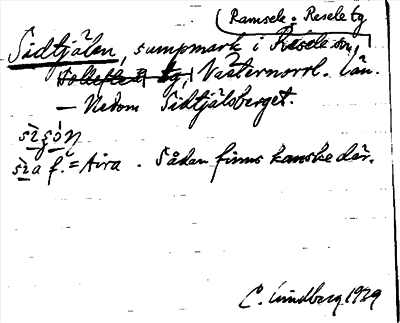 Ramsele o. Resele tg
Sidtjälen, sumpmark i Resele sn,
Sollefteå tg, Västernorrl. län.
— Nedom Sidtjälsberget.
sìa f. = Aira. Sådan finns kanske där.
C. Lindberg 1929